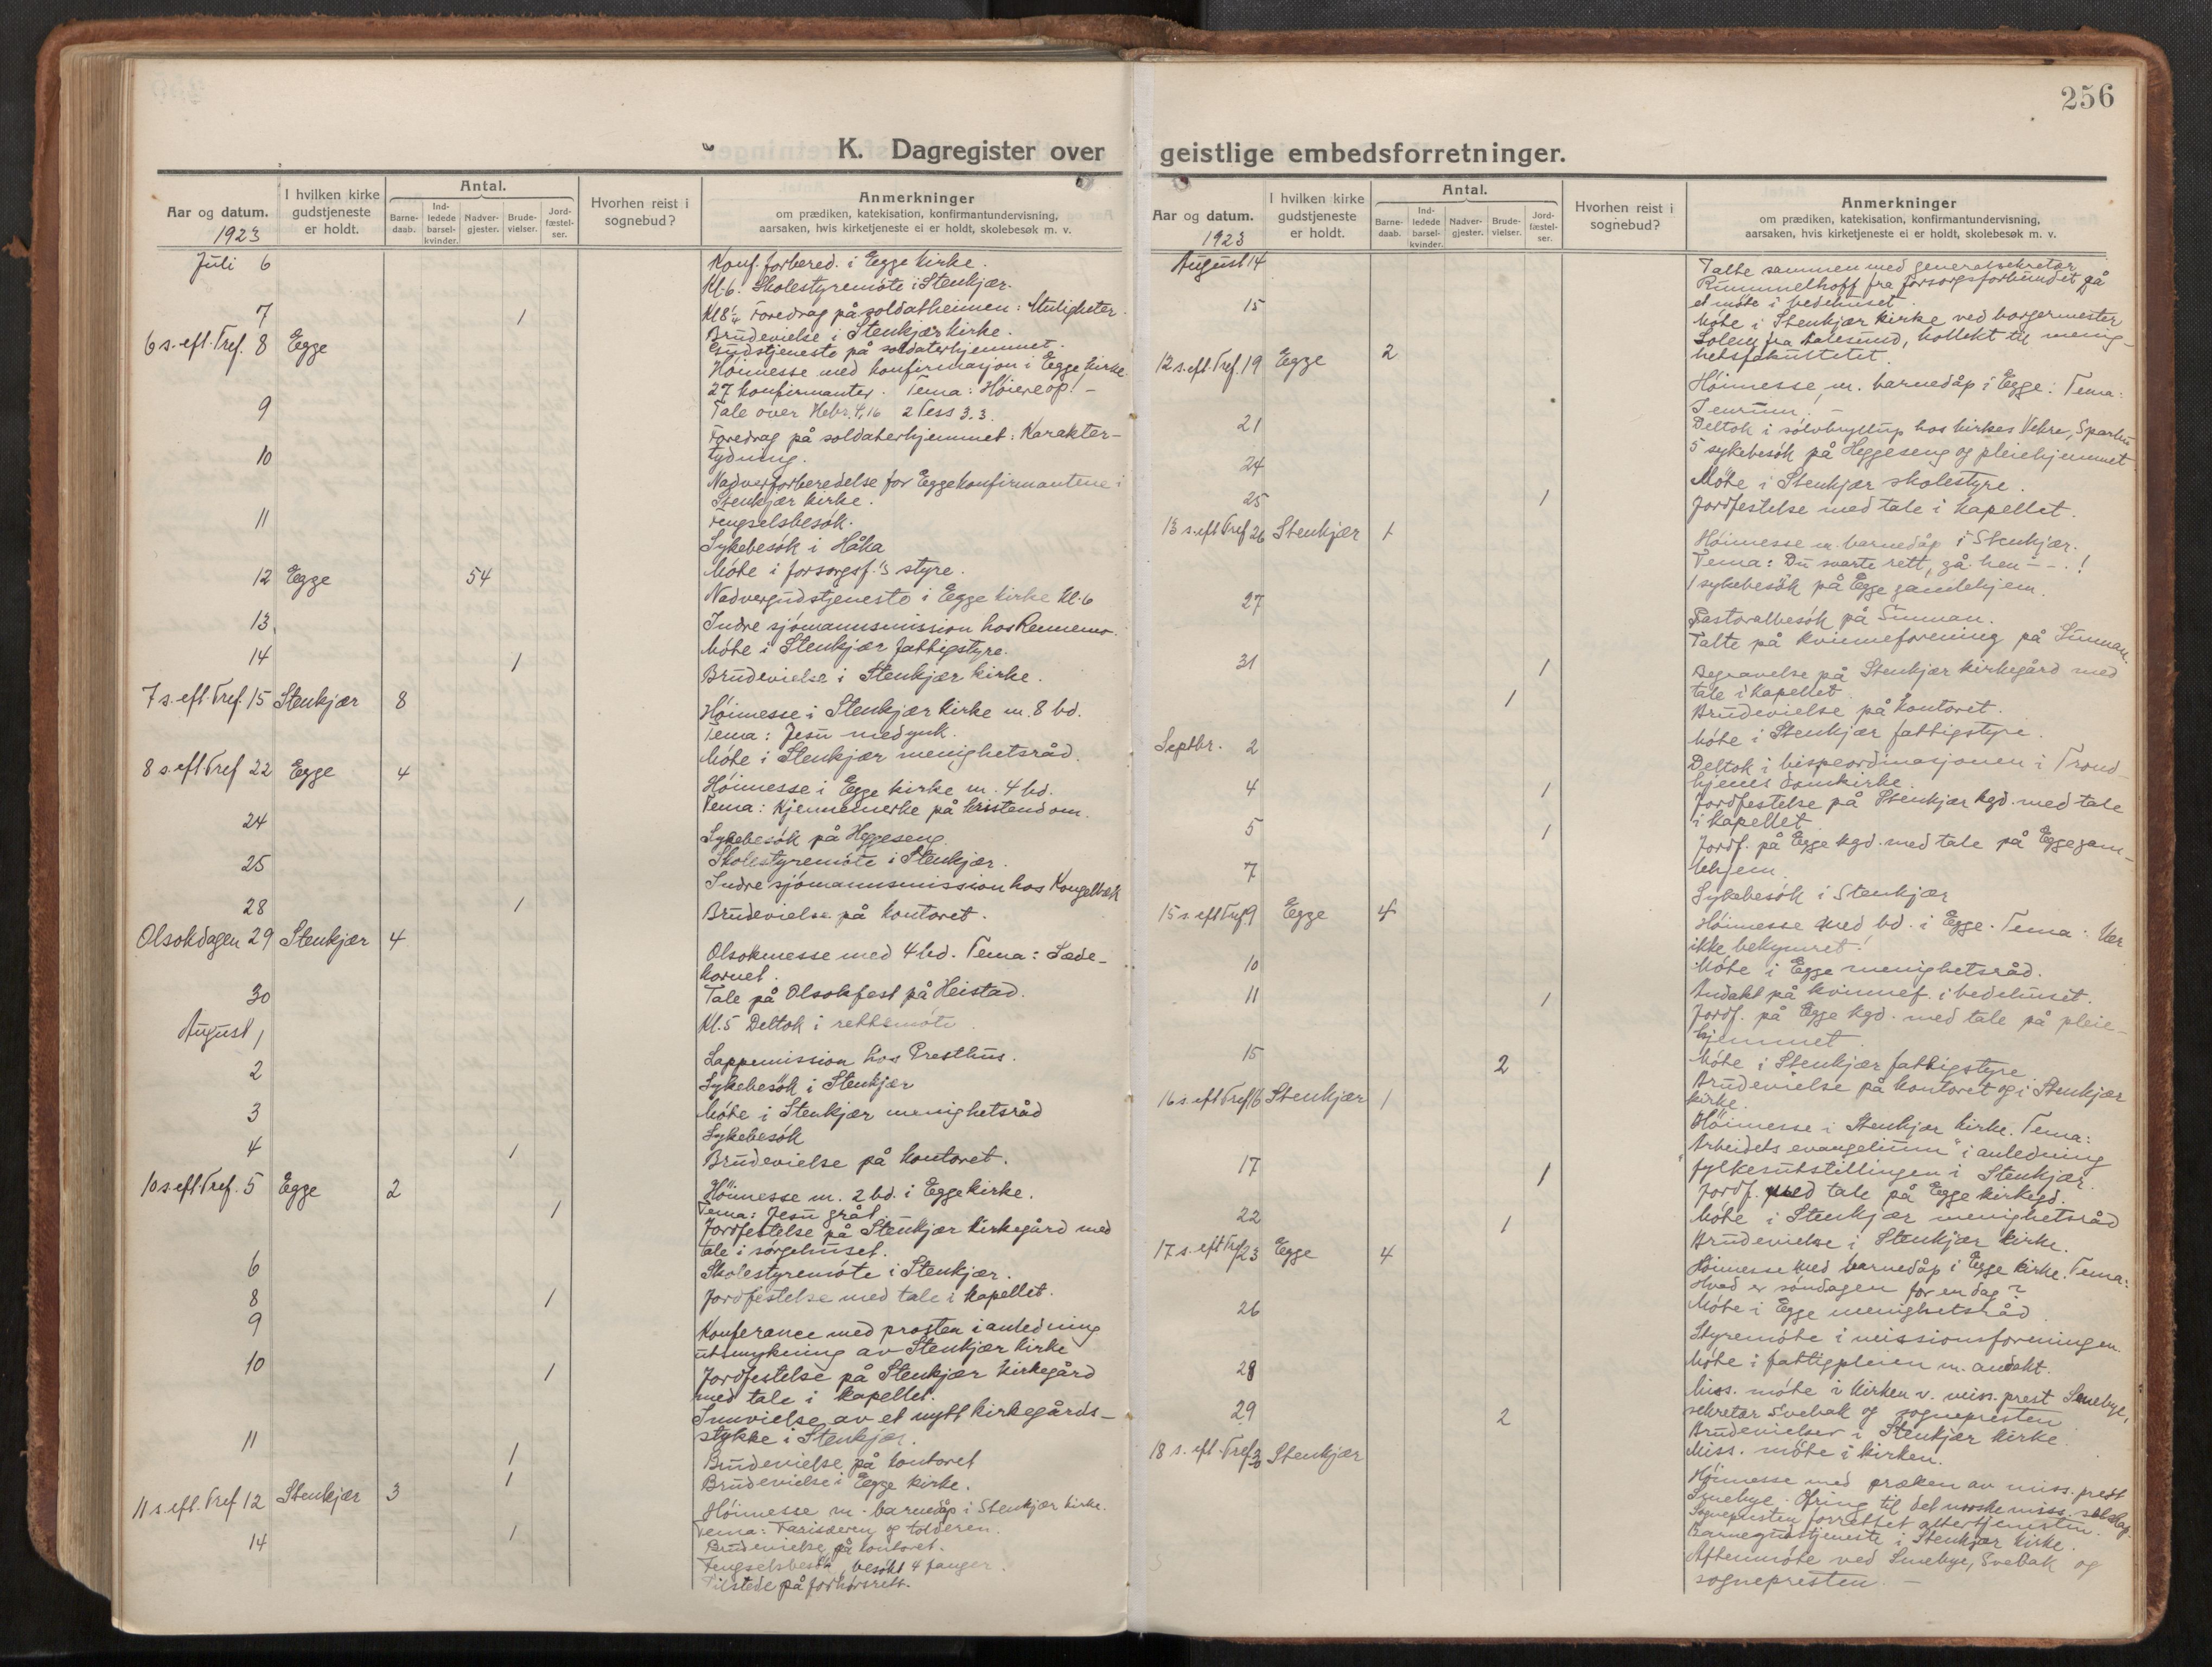 256
K. Dagregister over geistlige embedsforretninger.
Aar og datum.
1923
I hvilken kirke gudstjeneste er holdt.
Antal.
Barne-daab.
Ind-ledede barsel-kvinder.
Nadver-gjester.
Brude-vielser.
Jord-fæstel-ser.
Hvorhen reist i sognebud?
Anmerkninger
om prædiken, katekisation, konfirmantundervisning,
aarsaken, hvis kirketjeneste ei er holdt, skolebesøk m. v.
Juli 6
Konf. forbered. i Egge kirke.
Kl. 6. Skolestyremöte i Stenkjær.
Kl 8¼ Foredrag på soldatheimen: Muligheter.
7 1
Brudevielse i Stenkjær kirke.
Gudstjeneste på soldaterhjemmet.
6 s. eft. Tref. 8 Egge
Höimesse med konfirmasjon i Egge kirke.
27 konfirmanter. Tema: Höiere op! –
Tale over Hebr. 4,16 2 Tess 3.3.
9
Foredrag på soldaterhjemmet: Karakter-
tydning.
10
Nadverforberedelse for Eggekonfirmantene i
Stenkjær kirke.
Fengselsbesök.
11
Sykebesök i Håka
Möte i forsorgsf.'s styre.
12 Egge 54
Nadvergudstjeneste i Egge kirke Kl. 6
13.
Indre sjömannsmission hos Rennemo.
Möte i Stenkjær fattigstyre.
14 1
Brudevielse i Stenkjær kirke.
7 s. eft. Tref. 15 Stenkjær 8
Höimesse i Stenkjær kirke m. 8 bd.
Tema: Jesu medynk.
Möte i Stenkjær menighetsråd.
8 s. eft Tref 22 Egge 4
Höimesse i Egge kirke m. 4 bd.
Tema: Kjennemerke på kristendom.
24
Sykebesök på Heggeseng.
Skolestyremöte i Stenkjær.
25
Indre sjömannsmission hos Kongelbæk
28 1
Brudevielse på kontoret.
Olsokdagen 29 Stenkjær 4
Olsokmesse med 4 bd. Tema: Sæde-
kornet.
Tale på Olsokfest på Heistad.
30
Kl. 5 Deltok i rettsmöte
August 1
Lappemission hos Presthus.
2
Sykebesök i Stenkjær
3
Möte i Stenkjær menighetsråd
Sykebesök
4 1
Brudevielse på kontoret.
10 s. eft Tref. 5 Egge 2
Höimesse m. 2 bd. i Egge kirke.
Tema: Jesu gråt.
1
Jordfestelse på Stenkjær kirkegård med
tale i sörgehuset.
6
Skolestyremöte i Stenkjær.
8 1
Jordfestelse med tale i kapellet.
9
Konferance med prosten i anledning
utsmykning av Stenkjær kirke
10 1
Jordfestelse på Stenkjær kirkegård
med tale i kapellet.
Innvielse av et nytt kirkegårds-
stykke i Stenkjær.
11 1
Brudevielse på kontoret
1
Brudevielse i Egge kirke.
11 s. eft. Tref 12 Stenkjær 3
Höimesse m. barnedåp i Stenkjær kirke.
Tema: Farisæeren og tolderen.
14 1
Brudevielse på kontoret.
Fengselsbesök, besökt 4 fanger.
Tilstede på forhörsrett.
Aar og datum.
1923
I hvilken kirke gudstjeneste er holdt.
Antal.
Barne-daab.
Ind-ledede barsel-kvinder.
Nadver-gjester.
Brude-vielser.
Jord-fæstel-ser.
Hvorhen reist i sognebud?
Anmerkninger
om prædiken, katekisation, konfirmantundervisning,
aarsaken, hvis kirketjeneste ei er holdt, skolebesøk m. v.
August 14
Talte sammen med generalsekretær
Rummelhoff fra forsorgsforbundet på
et möte i bedehuset.
15
Möte i Stenkjær kirke ved borgermester
Solem fra Ålesund, kollekt til menig-
hetsfakultetet.
12 s. eft. Tref. 19 Egge 2
Höimesse m. barnedåp i Egge. Tema:
21
Deltok i sölvbryllup hos kirkes. Vekre, Sparbu
5 sykebesök på Heggeseng og pleiehjemmet
24
Möte i Stenkjær skolestyre.
25 1
Jordfestelse med tale i kapellet.
13 s. eft Tref 26 Stenkjær 1
Höimesse m. barnedåp i Stenkjær.
Tema: Du svarte rett, gå hen – – !
1 sykebesök på Egge gamlehjem.
27
Pastoralbesök på Sunnan.
Talte på kvinneforening på Sunnan.
31 1
Begravelse på Stenkjær kirkegård med
tale i kapellet.
1
Brudevielse på kontoret.
Möte i Stenkjær fattigstyre.
Septbr. 2
Deltok i bispeordinasjonen i Trond-
hjems domkirke.
4 1
Jordfestelse på Stenkjær kgd. med tale
i kapellet
5 1
Jordf. på Egge kgd. med tale på Egge gam-
lehjem.
7
Sykebesök i Stenkjær
15 s. eft Tref 9 Egge 4
Höimesse med bd. i Egge. Tema: Vær
ikke bekymret!
10
Möte i Egge menighetsråd.
Andakt på kvinnef. i bedehuset.
11 1
Jordf. på Egge kgd. med tale på pleie-
hjemmet
Möte i Stenkjær fattigstyre.
15 2
Brudevielse på kontoret og i Stenkjær
kirke.
16 s. eft Tref 16 Stenkjær 1
Höimesse i Stenkjær kirke. Tema:
„Arbeidets evangelium" i anledning
fylkesutstillingen i Stenkjær.
17 1
Jordf. med tale på Egge kirkegd.
Möte i Stenkjær menighetsråd
22 1
Brudevielse i Stenkjær kirke.
17. s. eft Tref 23 Egge 4
Höimesse med barnedåp i Egge kirke. Tema:
Hvad er söndagen for en dag?
Möte i Egge menighetsråd.
26
Styremöte i missionsforeningen.
Möte i fattigpleien m. andakt.
28
Miss. möte i kirken v. miss. prest Smebye,
sekretær Svebak og sognepresten
29 2
Brudevielser i Stenkjær kirke.
Miss. möte i kirken.
18 s. eft. Tref 30 Stenkjær
Höimesse med præken av miss. prest
Smebye. Ofring til det norske miss. selskap.
Sognepresten forrettet altertjenesten.
Barnegudstjeneste i Stenkjær kirke.
Aftenmöte ved Smebye, Svebak og
sognepresten. –